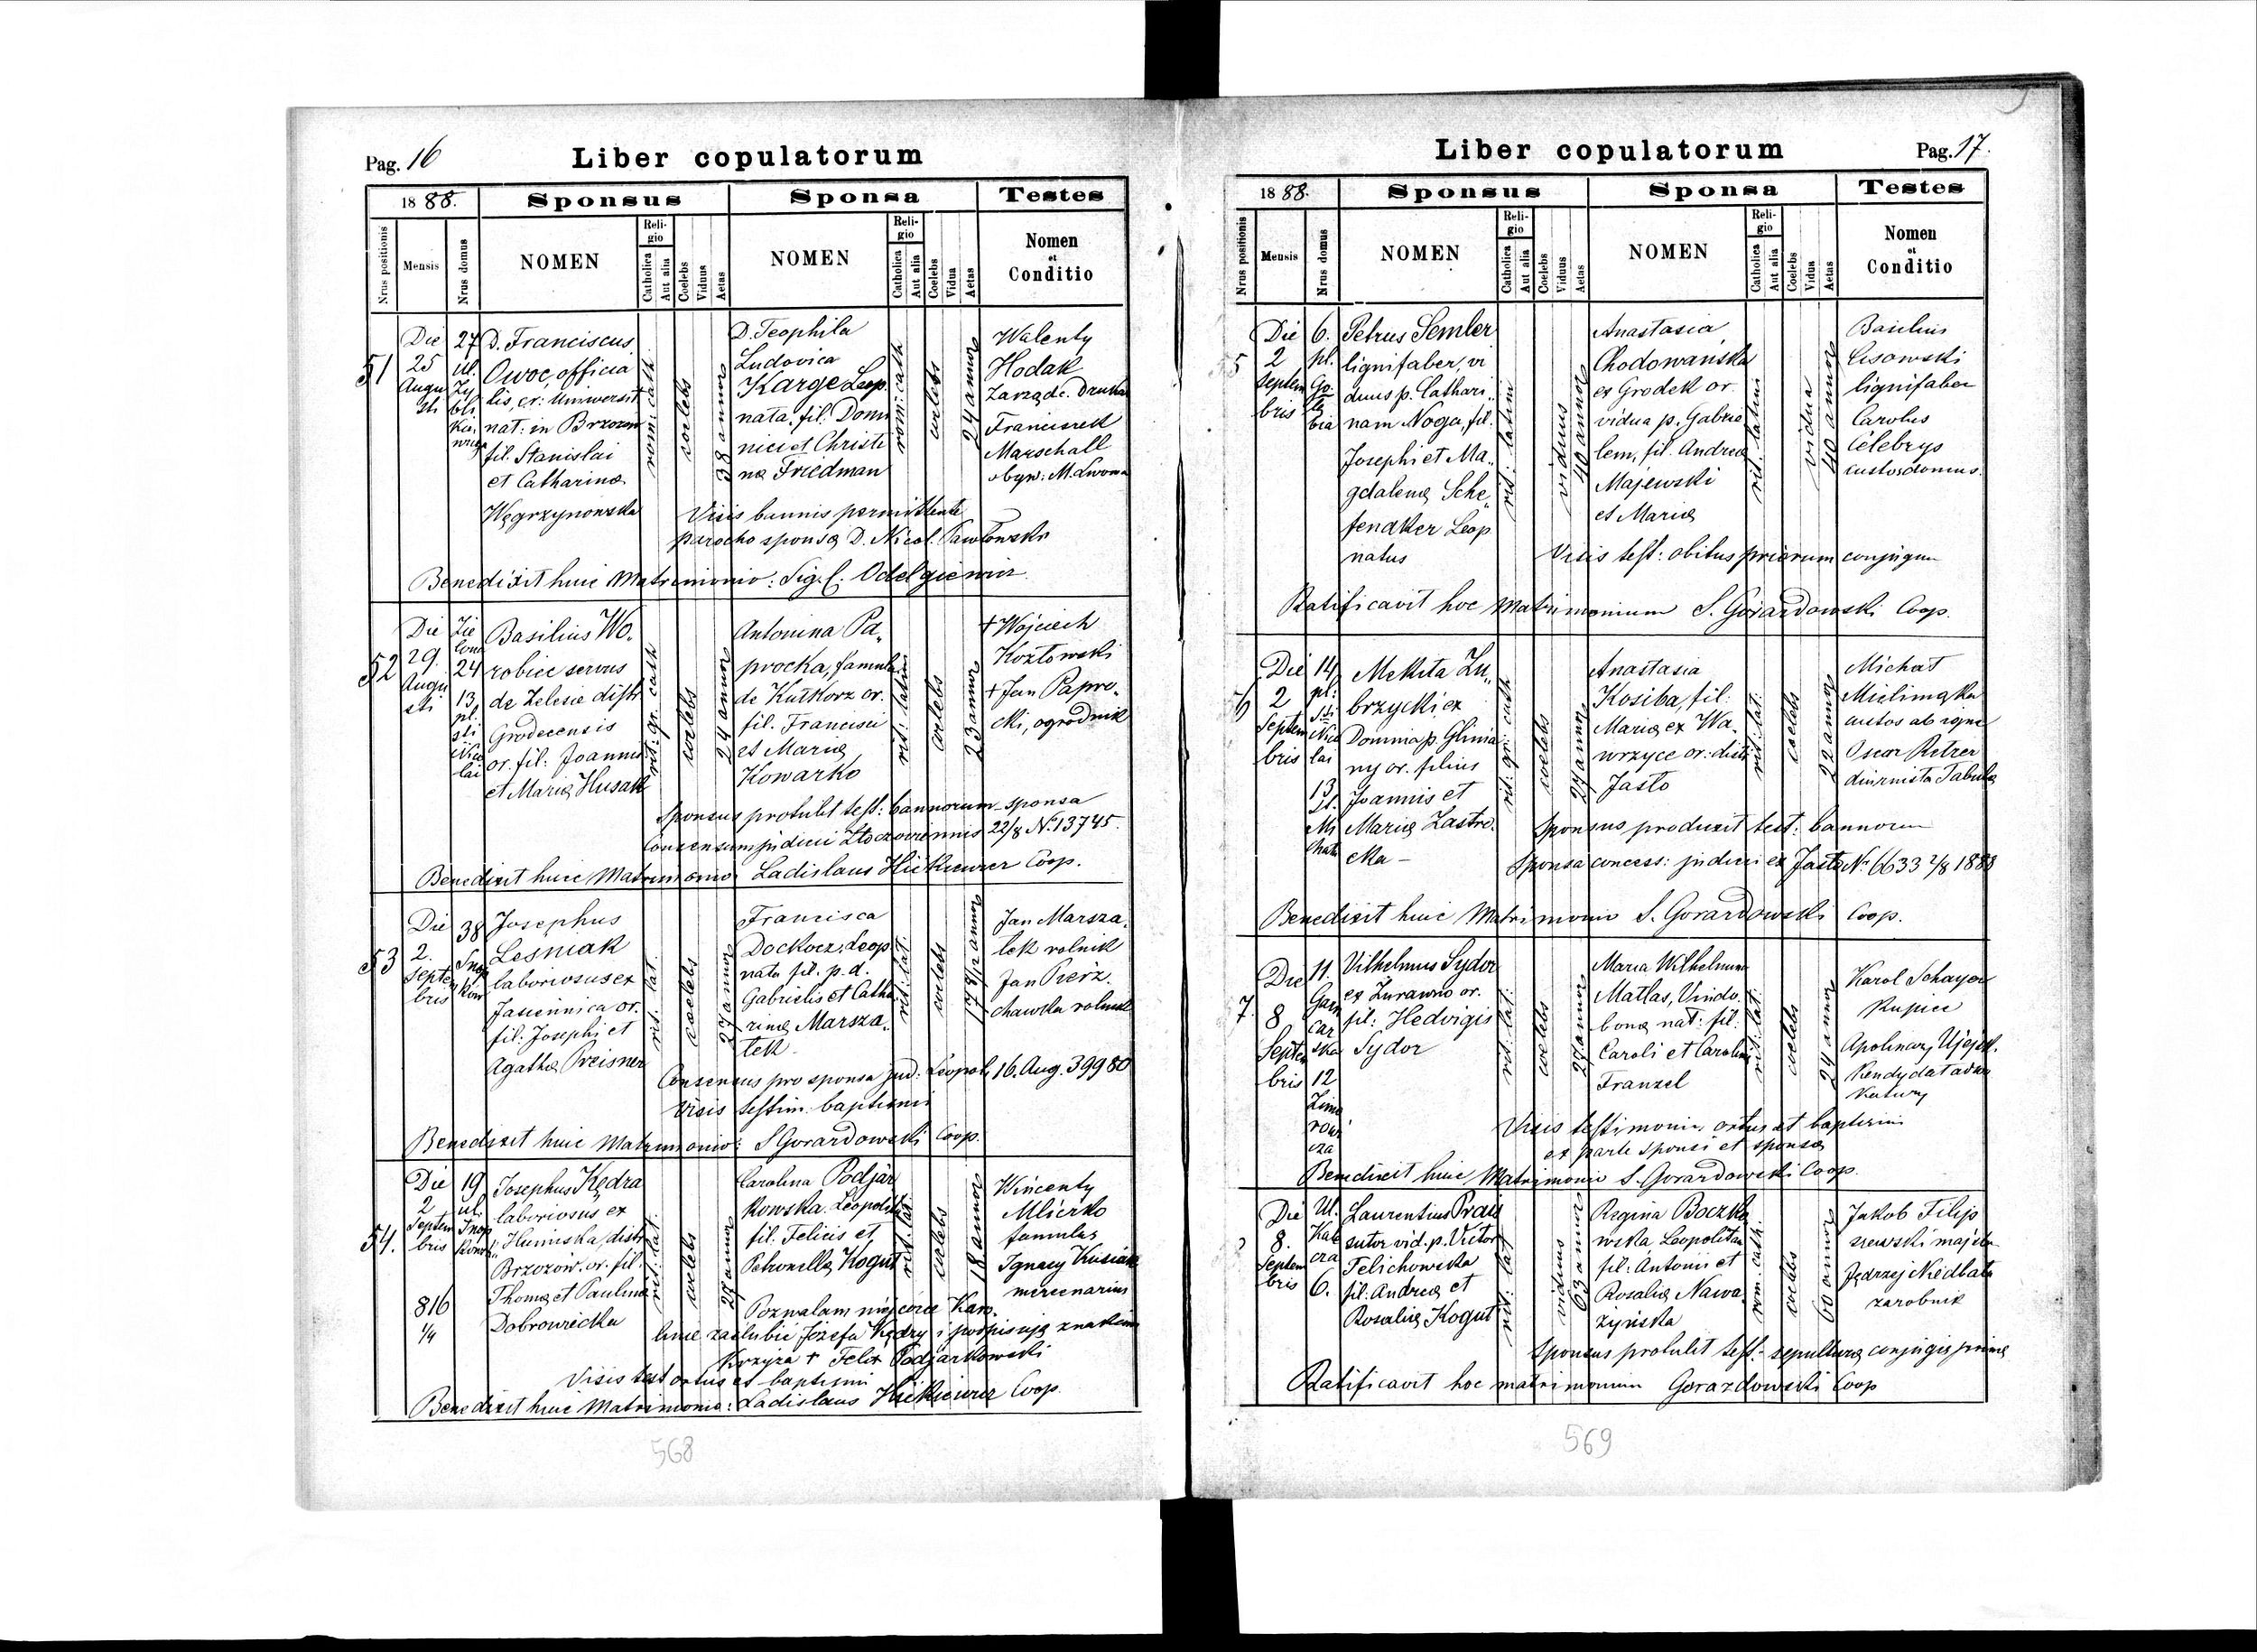 Pag. 16
Liber copulatorum
1888.
Sponsus
Sponsa
Testes
Nrus positionis
Mensis
Nrus domus
NOMEN
Religio
Catholica
Aut alia
Coelebs
Viduus
Aetas
NOMEN
Religio
Catholica
Aut alia
Coelebs
Vidua
Aetas
Nomen
et
Conditio
51
Die
25
Augu
sti
27
ul.
D. Franciscus
Owoc, officia
lis, cr: Uniwersit
nat: in Brzozow
fil. Stanislai
et Catharina
Węgrzynowska
rom: cath
coelebs
38 annor
D. Teophila
Ludovica
Karge Leop.
nata, fil. Domi
nici et Christi
na Friedman
rom: cath
coelebs
24 annor
Walenty
Hodak
Zarządc. Drukar
Franciszek
Marschall
obyw: M. Lwowa
Visis bannis permittente
parocho sponsa D. Nicol. Pawłowski
Benedixit huic Matrimonio: Sig. C. Odelgiewicz
52
Die
29.
Augu
sti
Zie
lona
24
13
pl.
sti
Nico
lai
Basilius Wo„
robiec servus
de Zelesie distr
Grodecensis
or. fil: Joannis
et Maria Husak
rit: gr. cath
coelebs
24 annor
Antonina Pa„
procka, famula
de Kutkorz or.
fil. Francisci
et Maria
Kowarko
rit: latin
coelebs
23 annor
+ Wojciech
Kozłowski
+ Jan Papro„
cki, ogrodnik
Sponsus protulit test: bannorum sponsa
Consensum judicii Zloczoviensis 22/8 N. 13745.
Benedixit huic Matrimonio Ladislaus Hickiewicz Coop.
53
Die
2.
Septem
bris
38
Snop
kow
Josephus
Lesniak
laboriosus ex
Jasiennica or.
fil. Josephi et
Agatha Preisner
rit. lat.
coelebs
27 annor
Francisca
Dockocz, Leop
nata fil. p. d.
Gabrielis et Catha
rina Marsza„
łek
rit: lat.
coelebs
17 8/12 annor
Jan Marsza„
łek rolnik
Jan Pierz„
chawka rolnik
Consensus pro sponsa jud: Leopol. 16. Aug. 39980
Visis testim. baptismi
Benedixit huic Matrimonio: S Gorardowski Coop.
54.
Die
2
Septem
bris
816
1/4
19
ul.
Snop
kows
Josephus Kędra
laboriosus ex
Humiska, distr
Brzozów. or. fil.
Thoma et Paulina
Dobrowiecka
rit: lat.
coelebs
27 annor
Carolina Podjar
kowska Leopolit
fil. Felicis et
Petronella Kogut
rit. lat.
coelebs
18 annor
Wincenty
Mliczko
famulus
Ignacy Kusiak
mercenarius
Pozwalam mojej córce Karo„
linie zaślubić Józefa Kędry i podpisuję znakiem
Krzyża + Felix Podjarkowski
Visis test ortus et baptismi
Benedixit huic Matrimonio: Ladislaus Hickiewicz Coop.
568
Liber copulatorum
Pag. 17.
1888.
Sponsus
Sponsa
Testes
Nrus positionis
Mensis
Nrus domus
NOMEN
Religio
Catholica
Aut alia
Coelebs
Viduus
Aetas
NOMEN
Religio
Catholica
Aut alia
Coelebs
Vidua
Aetas
Nomen
et
Conditio
5
Die
2
Septem
bris
6.
pl.
Petrus Semler
lignifaber, vi
duus p. Cathari„
nam Noga, fil.
Josephi et Ma„
gdalena Sche„
fendker Leop
natus
rit: latin
viduus
40 annor
Anastasia
Chodowańska
ex Grodek or.
vidua p. Gabrie
lem, fil. Andrea
Majewski
et Maria
rit: latin
vidua
40 annor
Basilius
Lisowski
lignifaber
Carolus
Celebrys
custos domus.
Visis test: obitus priorum conjugum
Ratificavit hoc Matrimonium S. Gorardowski Coop.
6
Die
2
Septem
bris
14
pl.
Sti
Nico
lai
13
Mekita Zu„
brzycki ex
Dominia p. Glinia
ny or. filius
Joannis et
Maria Zastro.
cka –
rit: gr: cath
coelebs
27 annor
Anastasia
Kosiba, fil.
Maria ex Wa„
wrzyce or: distr
Jasło
rit: lat:
coelebs
22 annor
Michał
Mielimąka
custos ab igne
Oscar Retzer
diurnista Tabula
Sponsus produxit test: bannorum
Sponsa concess: judicii ex Jasło N. 6633 2/8 1888
Benedixit huic Matrimonio S. Gorardowski Coop.
7.
Die
8
Septem
bris
11.
Gan
car
ska
12
Zimo
rowi
cza
Vilhelmus Sydor
ex Zurawno or.
fil: Hedvigis
Sydor
rit: lat:
coelebs
27 annor
Maria Wilhelmina
Matlas, Vindo„
bona nat: fil:
Caroli et Carolina
Franzel
rit: lat:
coelebs
24 annor
Karol Schayer
Kupiec
Apolinary Ujejsk.
Kendydat adwo
katury
Visis testimonia ortus et baptismi
ex parte sponsi et sponsa
Benedixit huic Matrimonio S. Gorardowski Coop.
Die
8.
Septem
bris
Ul.
Kale
cza
6.
Laurentius Prais
sutor vid. p. Victor
Felichowska
fil: Andrea et
Rosalia Kogut
rit: lat
viduus
63 annor
Regina Boczko
wska Leopolitan
fil: Antonii et
Rosalia Nawa„
zyńska
rom. cath.
coelebs
60 annor
Jakob Filip
szewski majster
Jędrzej Niedbała
zarobnik
Sponsus protulit test. sepultura conjugis prima
Ratificavit hoc matrimonium Gorazdowski Coop
569